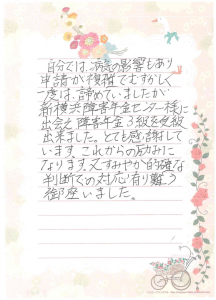 自分では、病気の影響もあり
申請が複雑でむずかしく
一度は、諦めていましたが
新横浜障害年金センター様に
出会え障害年金3級を受給
出来ました。とても感謝して
います。これからの励みに
なります。又すみやか的確な
判断での対応有り難う
御座いました。